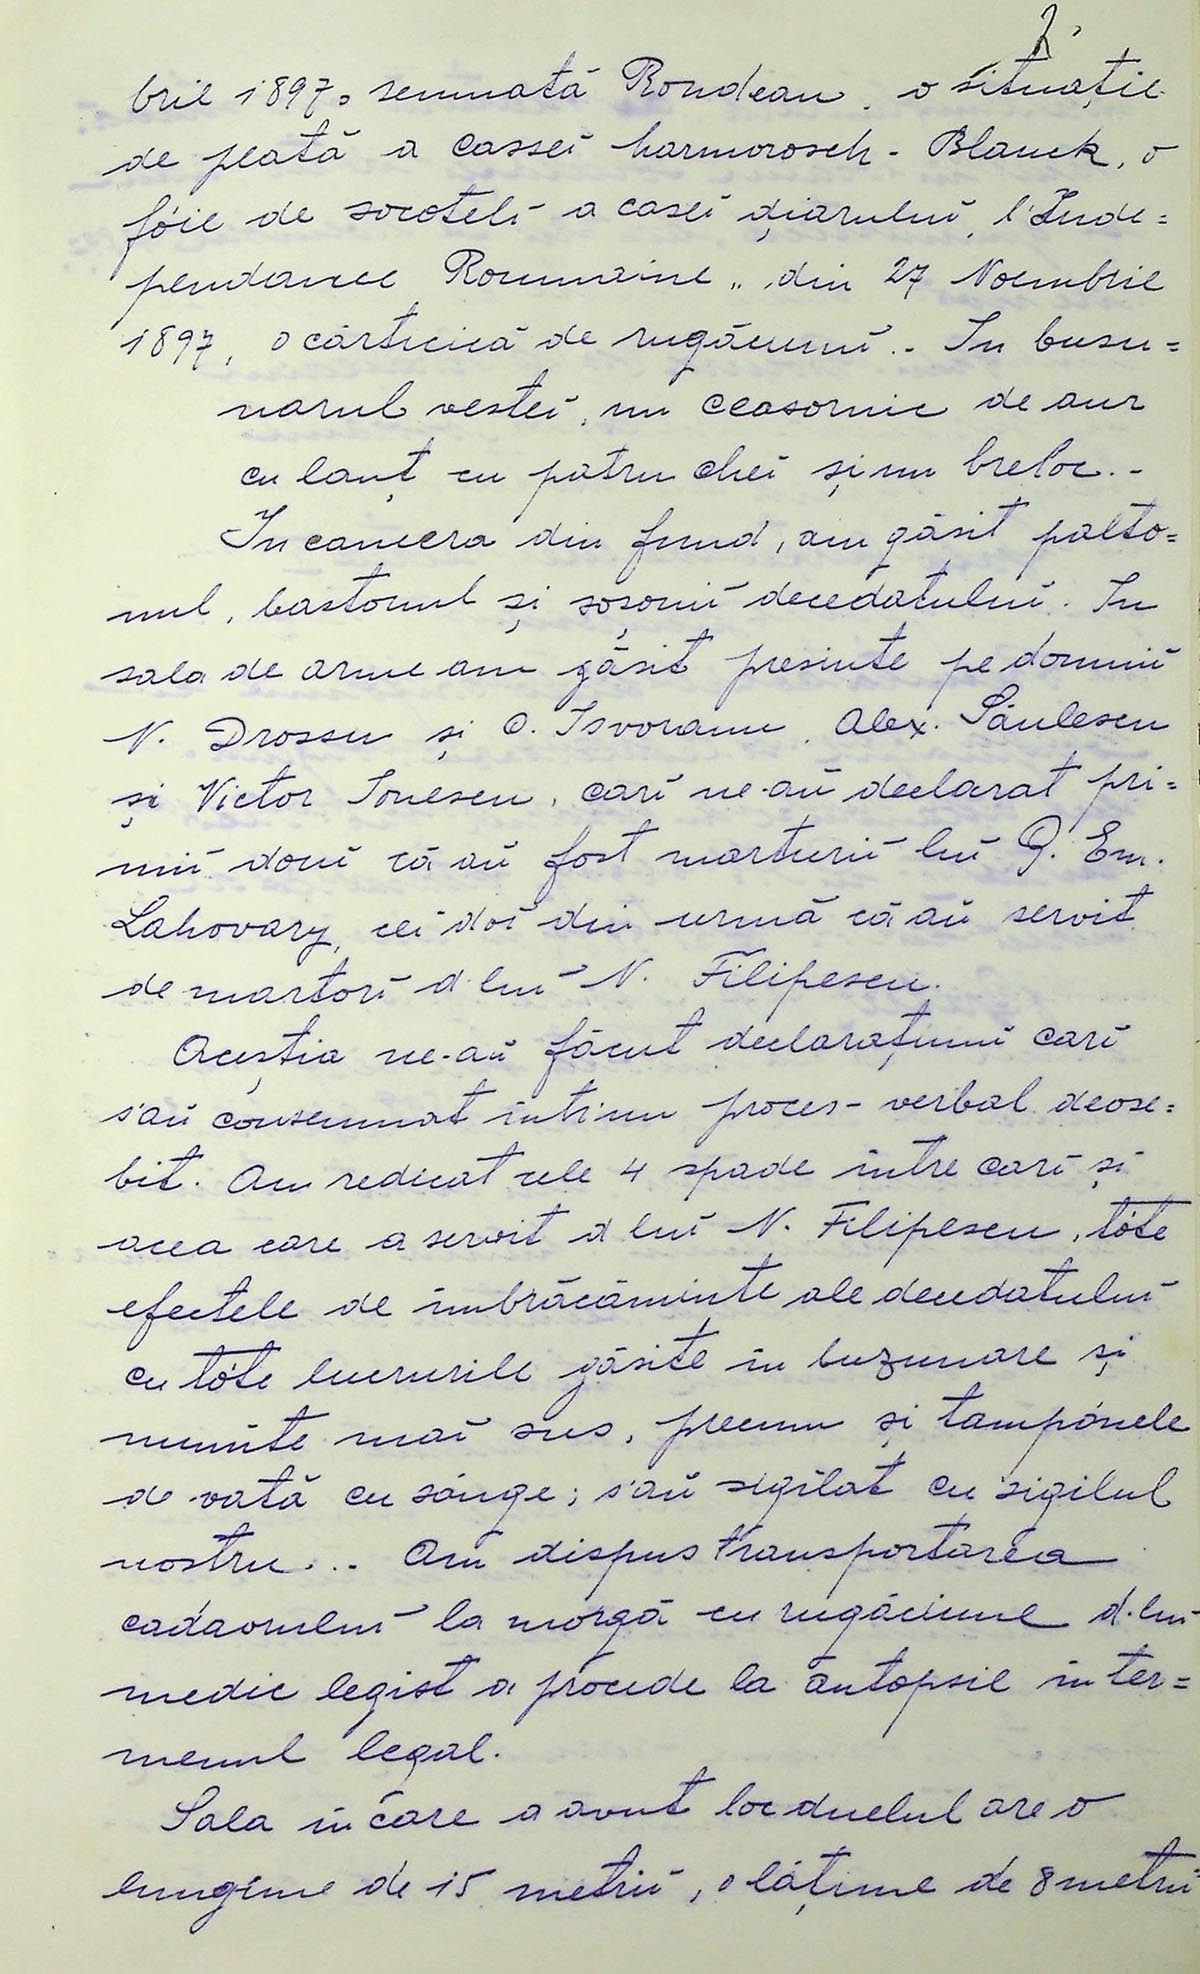 2
brie 1897, semnată Rondeau, o situație
de plată a cassei harmorosch-Blanck, o
fóie de socotelĭ a caseĭ ḑiaruluĭ, l'Inde=
pendance Roumaine„ din 27 Noembrie
1897, o cărticică de rugăciunĭ.. In busu=
narul vesteĭ, un ceasornic de aur
cu lanț cu patru cheĭ și un breloc.-
In camera din fund, am găsit palto=
nul, bastonul și șoșoniĭ decedatuluĭ. In
sala de arme am găsit presinte pe domniĭ
N. Drossu și O. Isvoranu, Alex. Săulescu
și Victor Ionescu, carĭ ne-aŭ declarat pri=
miĭ douĭ că aŭ fost marturiĭ luĭ G. Em.
Lahovary, ceĭ doĭ din urmă că aŭ servit
de martorĭ d luĭ N. Filipescu.
Aceștia ne-aŭ făcut declarațiunĭ carĭ
s'aŭ consemnat intr'un proces-verbal deose=
bit. Am redicat cele 4 spade între carĭ și
acea care a servit d luĭ N. Filipescu, tóte
efectele de îmbrăcăminte ale decedatuluĭ
cu tóte lucrurile găsite în buzunare și
numite maĭ sus, precum și tampónele
de vată cu sânge; s'aŭ sigilat cu sigilul
nostru... Am dispus transportarea
cadavruluĭ la morgă cu rugăciune d-luĭ
medic legist a procede la autopsie în ter=
menul legal.
Sala în care a avut loc duelul are o
lungime de 15 metriĭ, o lățime de 8 metriĭ